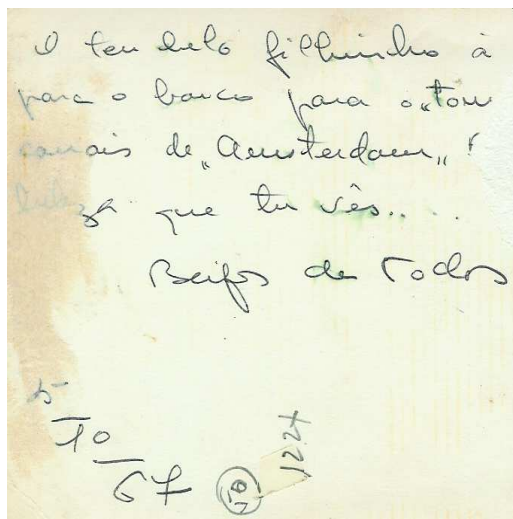 O teu belo filhinho à
para o barco para o „tour
canais de „Amsterdam„!
já que tu vês.. ..
Beijos de Todos
5
10
67
1227